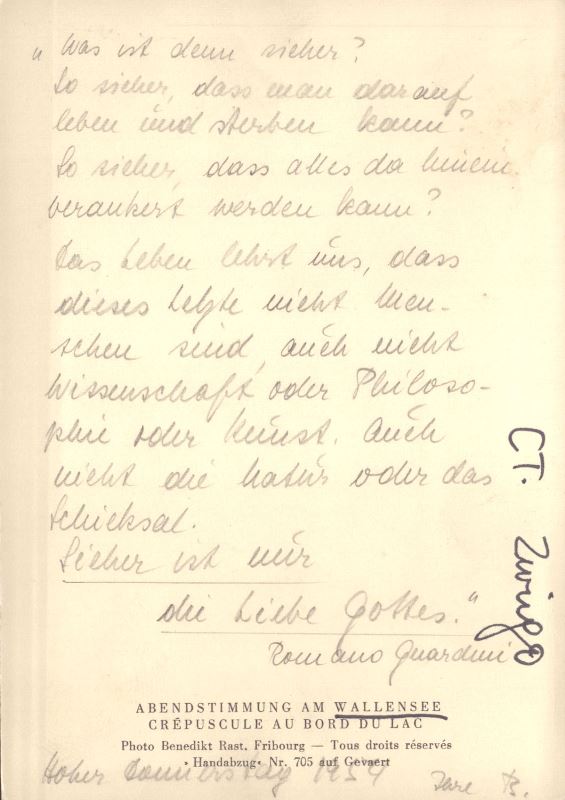 „ Was ist denn sicher?
So sicher, dass man darauf
leben und sterben kann?
So sicher, dass alles da hinein
verankert werden kann?
Das Leben lehrt uns, dass
dieses Letzte nicht Men-
schen sind, auch nicht
Wissenschaft oder Philoso-
phie oder Kunst. Auch
nicht die Natur oder das
Schicksal.
Sicher ist nur
die Liebe Gottes."
Romano Guardini
CT. Zwingo
ABENDSTIMMUNG AM WALLENSEE
CRÉPUSCULE AU BORD DU LAC
Photo Benedikt Rast, Fribourg — Tous droits réservés
»Handabzug« Nr. 705 auf Gevaert
Hoher Donnerstag 1954 Ihre B.